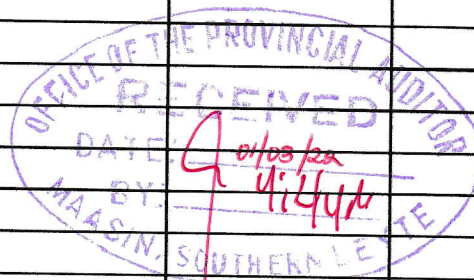 OFFICE OF THE PROVINCIAL AUDITOR
RECEIVED
DATE: 01/03/22
BY: 4:44
MAASIN, SOUTHERN LEYTE